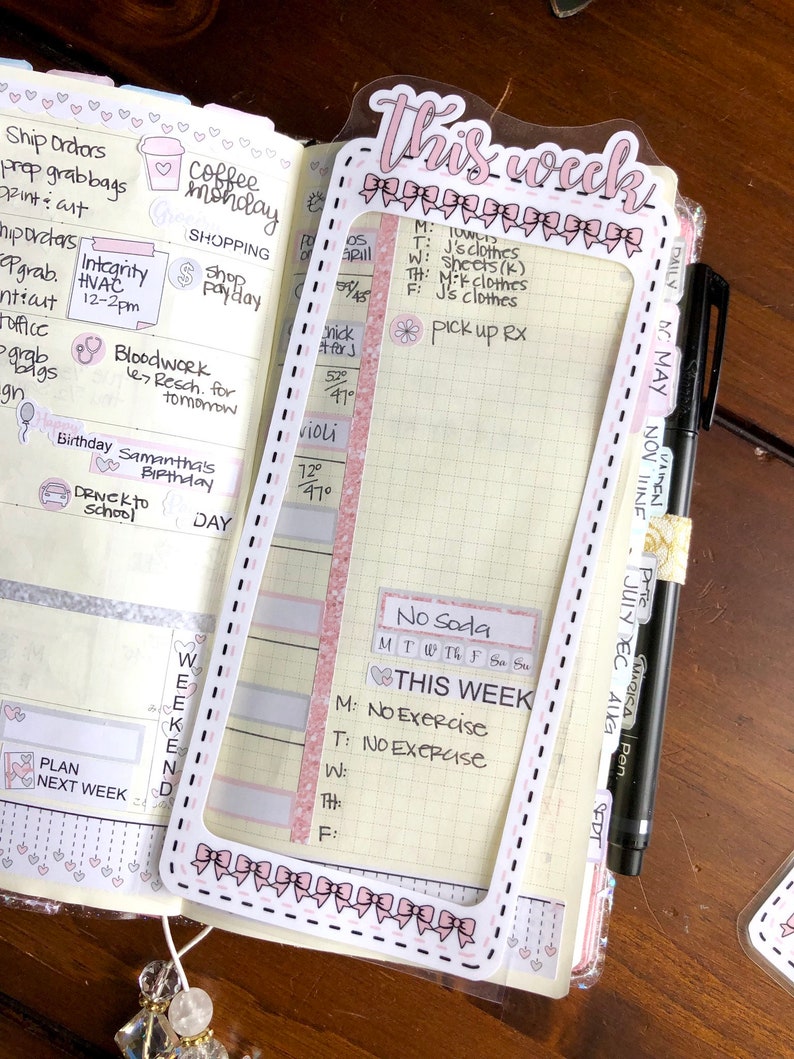 Ship orders
prep grab bags
print & cut
coffee
monday
Grocery
SHOPPING
Ship orders
grab.
cut
Integrity
HVAC
12-2pm
$
shop
payday
office
grab
bags
Bloodwork
↳ Resch. for
tomorrow
Happy
Birthday
Samantha's
Birthday
DRIVE to
school
DAY
WEEKEND
PLAN
NEXT WEEK
52°
/47°
72°
/47°
this week
M: Towels
T: J's clothes
W: Sheets (K)
TH: M&K clothes
F: J's clothes
PICK UP RX
No Soda
M T W Th F Sa Su
THIS WEEK
M: NO EXERCISE
T: NO EXERCISE
W:
TH:
F:
DAILY
MAY
NOV
KAIDEN
JUNE
PETS
JULY
DEC
AUG
Pen